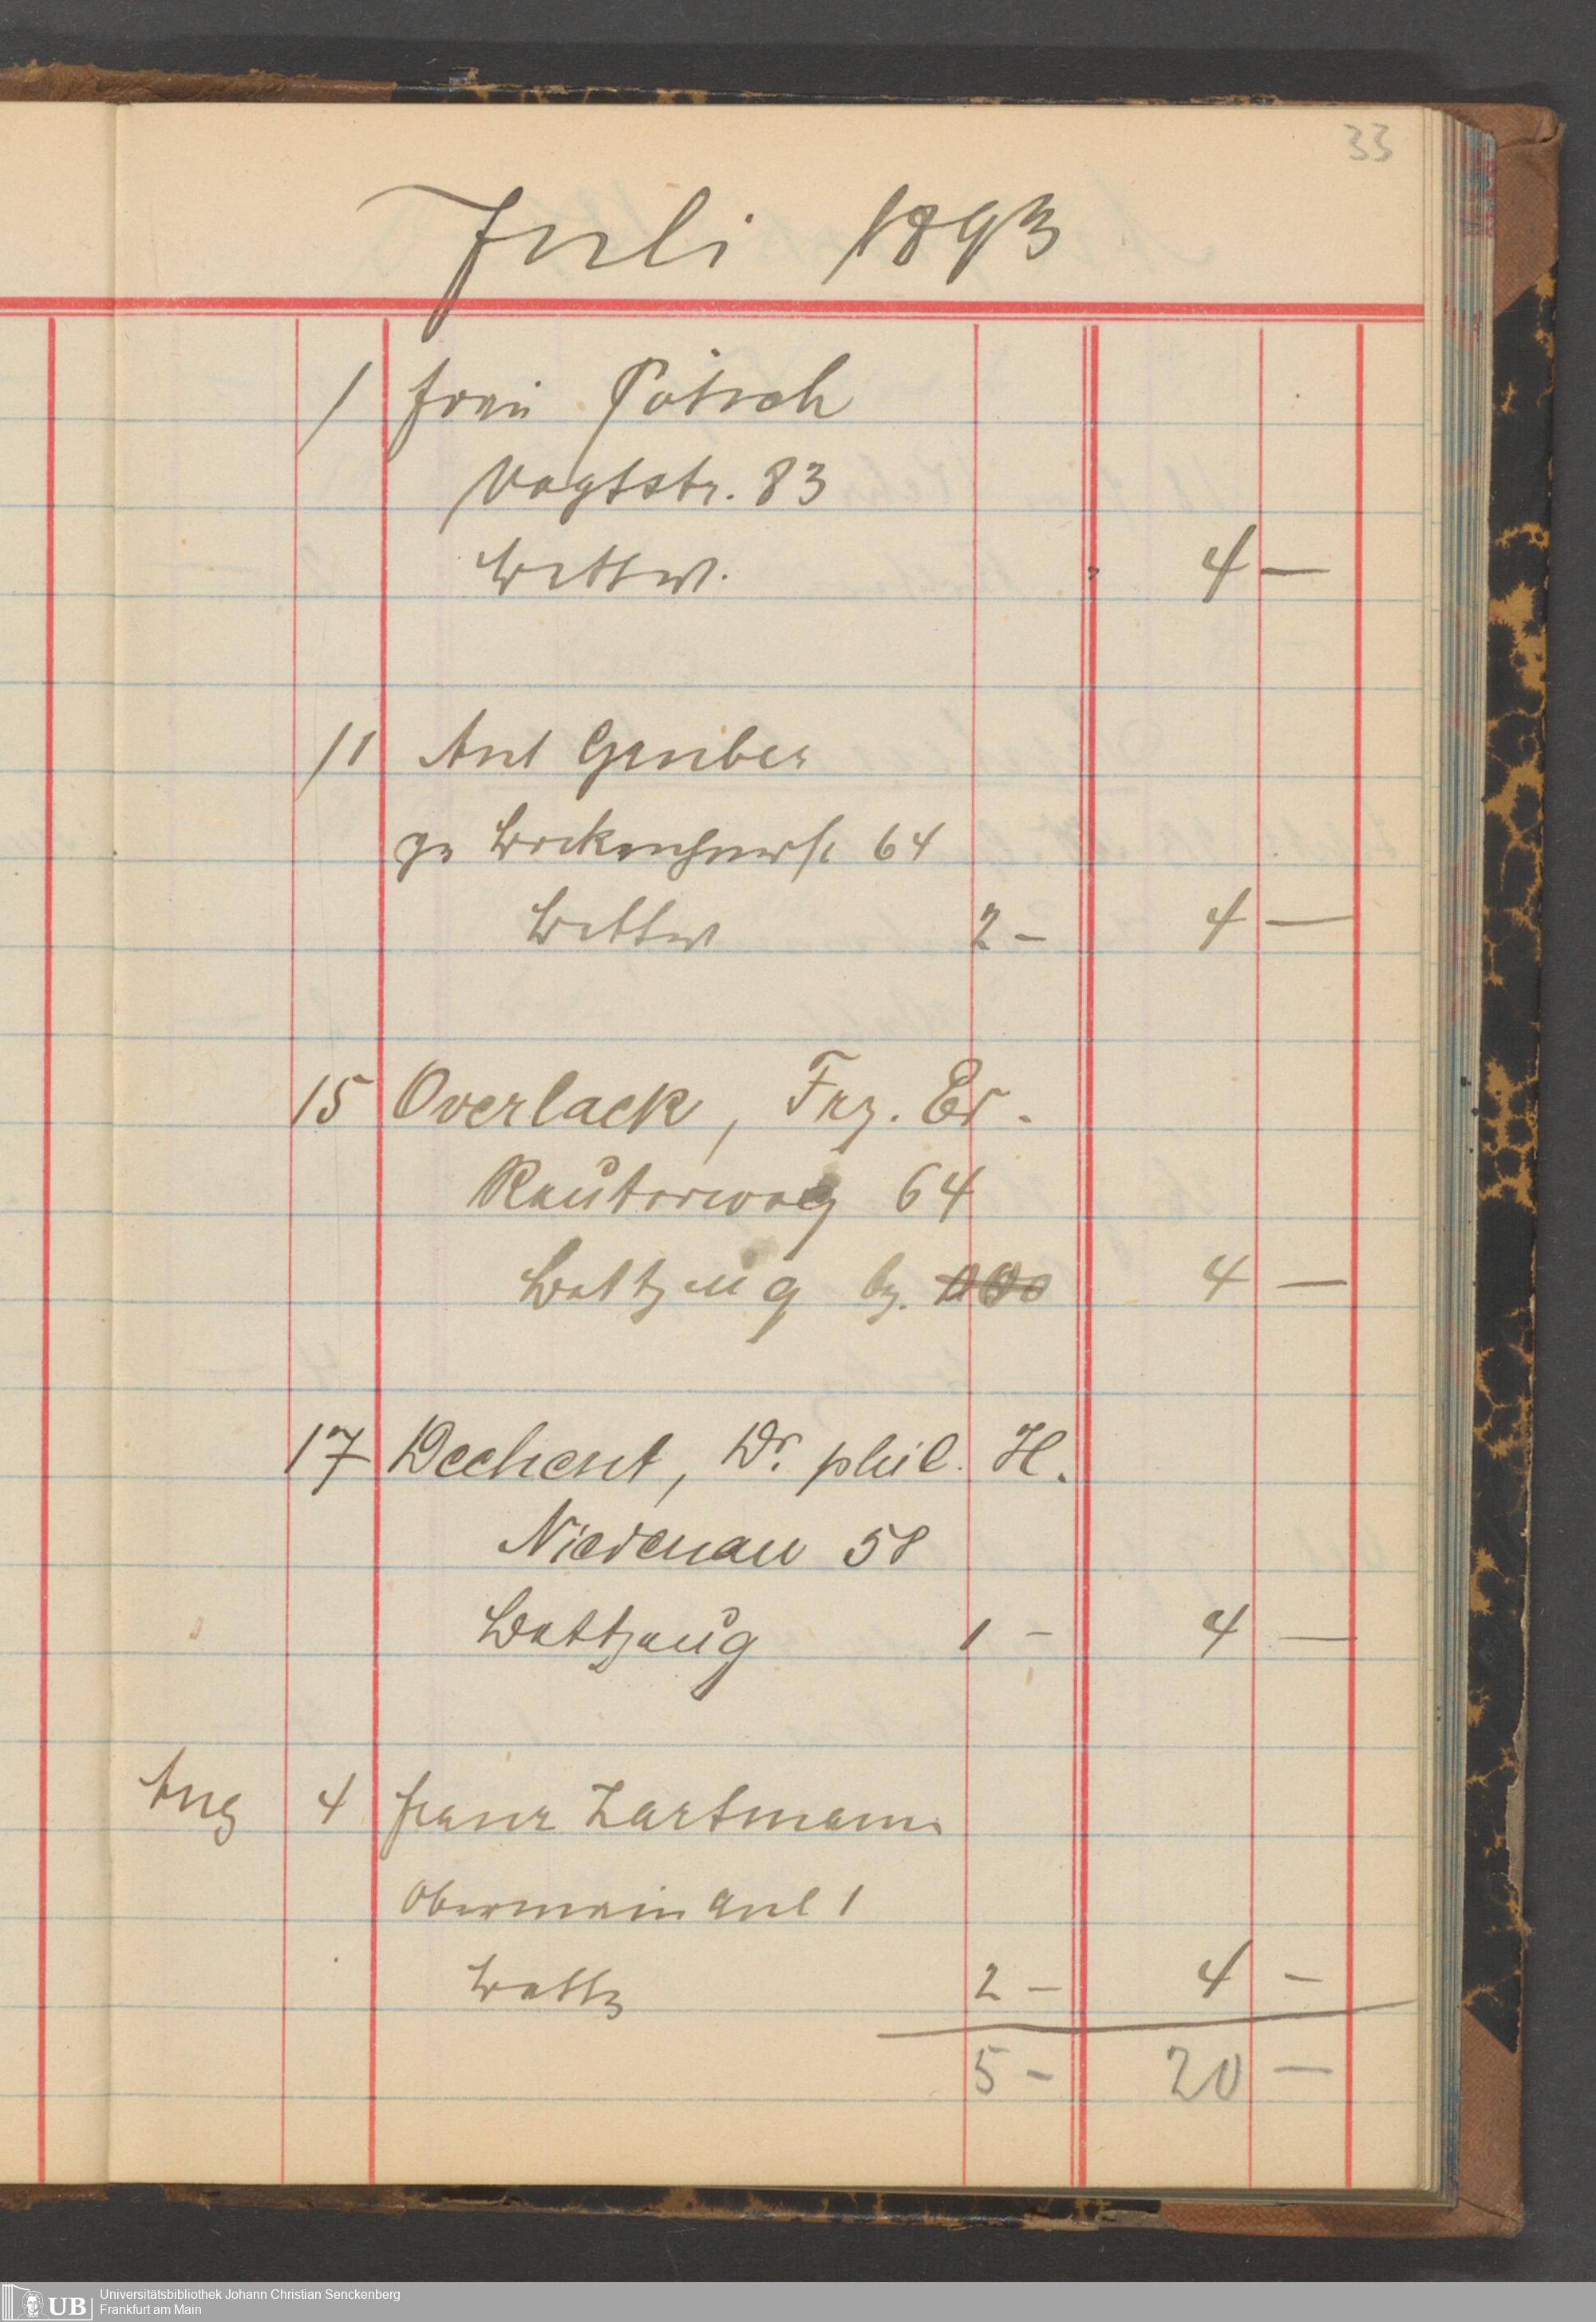 33
Juli 1893
1 Frau Pötsch
Vogtstr. 83
Bettw. 4 —
11 Ant Gruber
gr Bockenheimerstr 64
Bettw 2 – 4 —
15 Overlack, Frz. Ed.
Reuterweg 64
Bettzeug bz. 4 —
17 Dechent, Dr. phil. H.
Niedenau 58
Bettzeug 1 – 4 —
Aug 4 Franz Hartmann
Obermain Anl 1
Bettz 2 – 4 –
5 – 20 —
UB Universitätsbibliothek Johann Christian Senckenberg
Frankfurt am Main